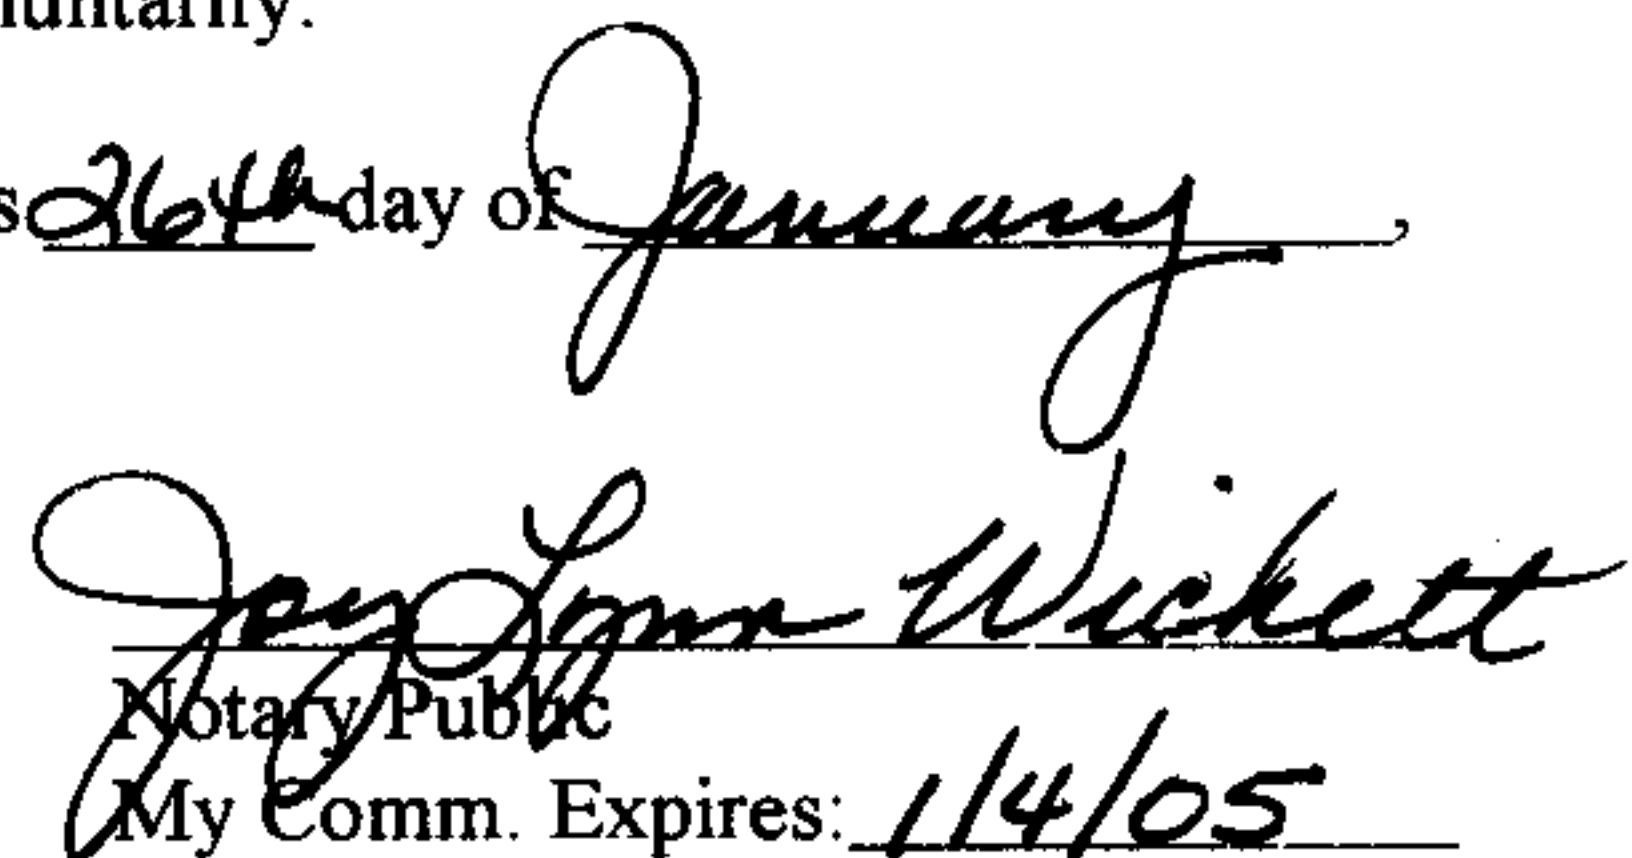 luntarily.
s 26th day of January,
Joy Lynn Wickett
Notary Public
My Comm. Expires: 1/4/05